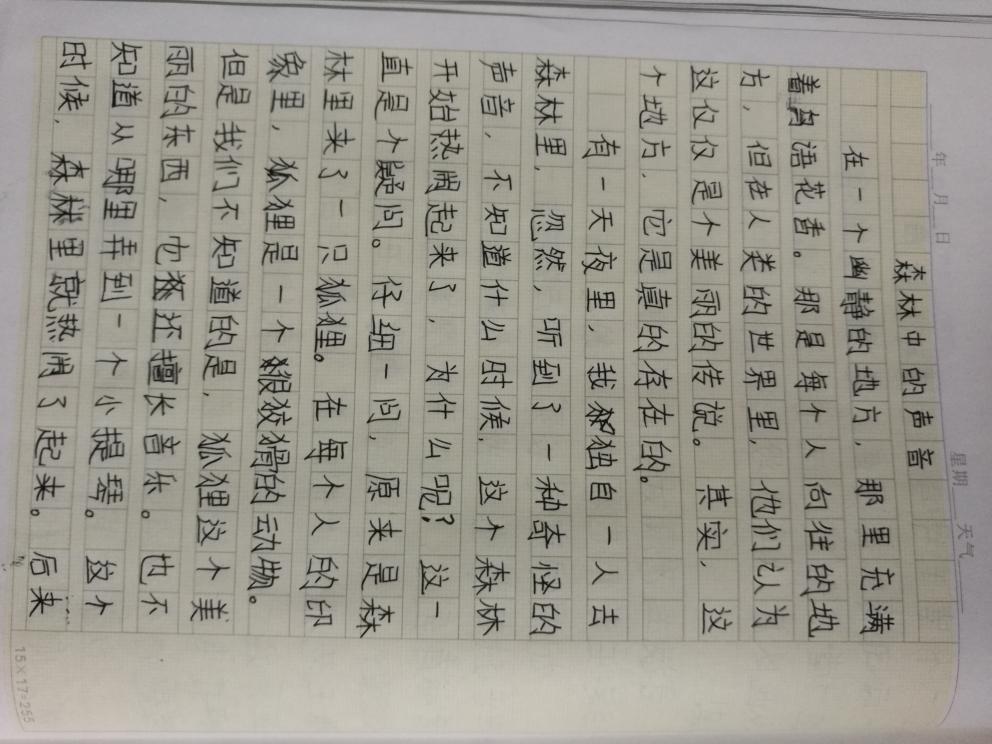 年 月 日
星期 天气
森林中的声音
在一个幽静的地方，那里充满
着鸟语花香。那是每个人向往的地
方，但在人类的世界里，他们认为
这仅仅是个美丽的传说。其实，这
个地方，它是真的存在的。
有一天夜里，我独自一人去
森林里，忽然，听到了一种奇怪的
声音，不知道什么时候，这个森林
开始热闹起来了，为什么呢？这一
直是个疑问。仔细一问，原来是森
林里来了一只狐狸。在每个人的印
象里，狐狸是一个狡猾的动物。
但是我们不知道的是，狐狸这个美
丽的东西，也还擅长音乐。也不
知道从哪里弄到一个小提琴。这个
时候，森林里就热闹了起来。后来
15×17=255